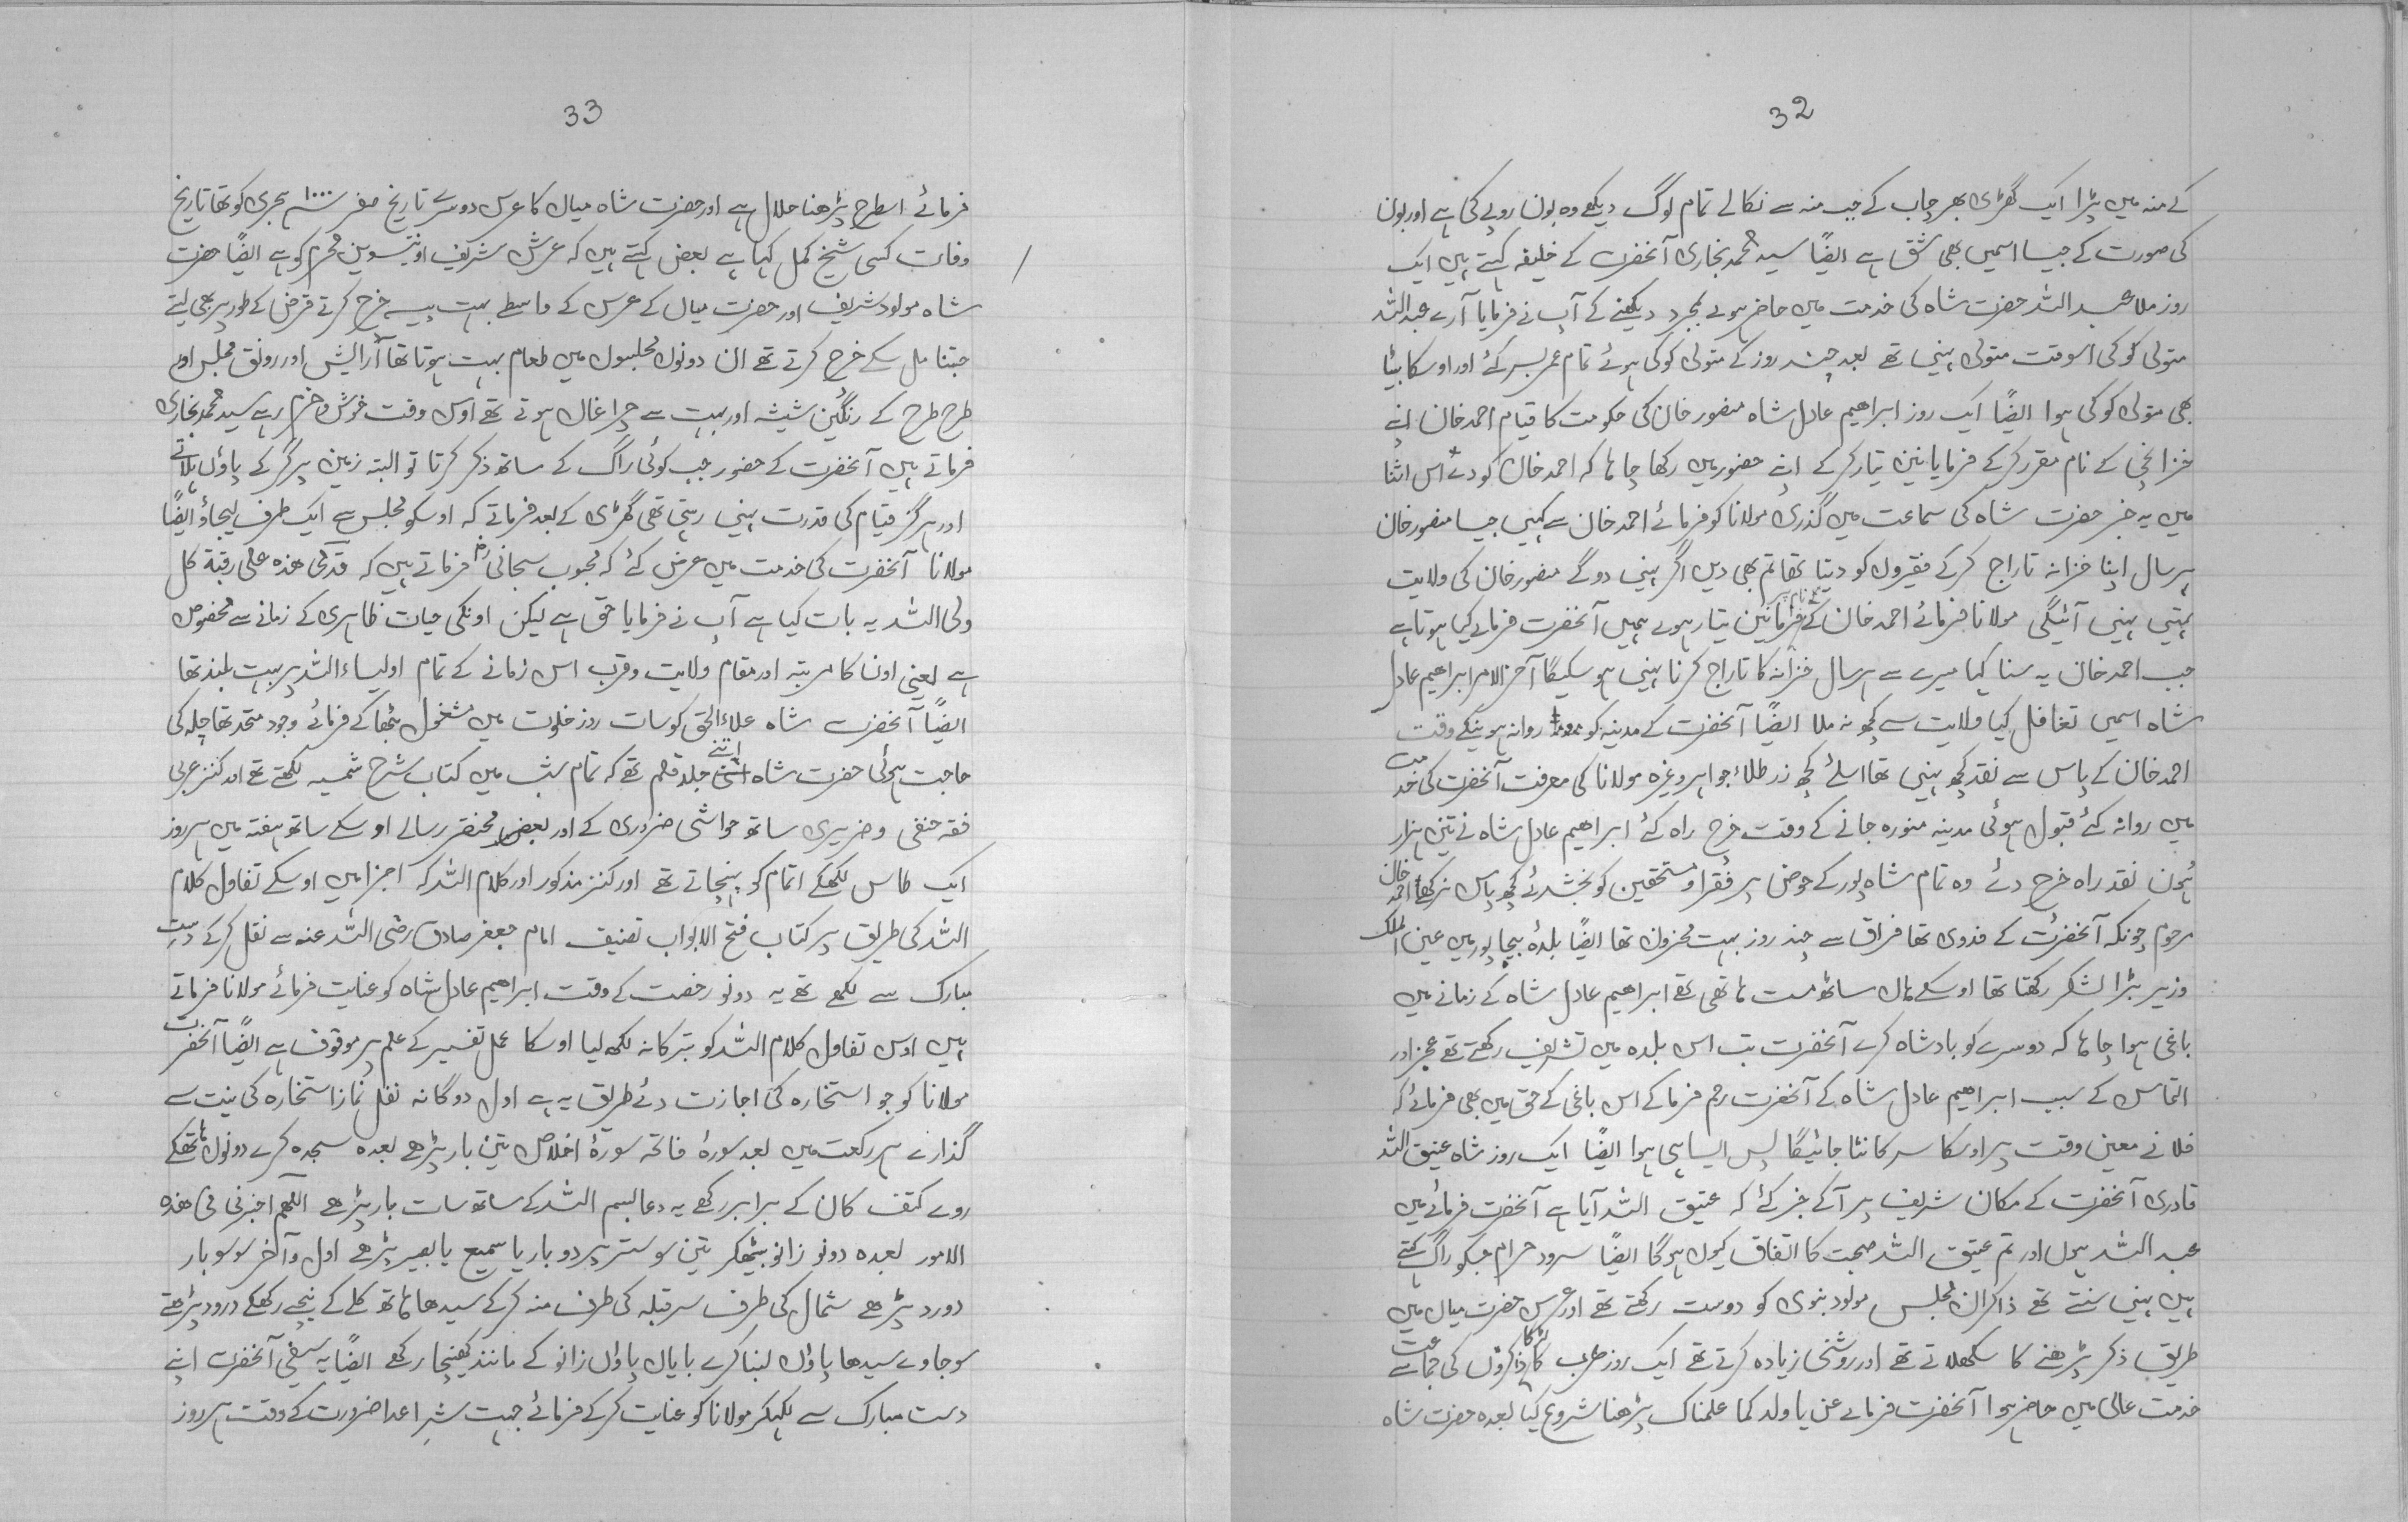 32
کے منہ میں پڑا ایک گھڑی بھر چاب کے جب منہ سے نکالے تمام لوگ دیکھے وہ ہون روپے کی ہے اور ہون
کی صورت کے جیسا اسمیں بھی شق ہے ایضًا سید محمد بخاری آنحضرت کے خلیفہ کہتے ہیں ایک
روز ملا عبد اللہ حضرت شاہ کی خدمت میں حاضر ہوے بمجرد دیکھنے کے آپ نے فرمایا آرے عبد اللہ
متولی کوکی اسوقت متولی نہیں تھے بعد چند روز کے متولی کوکی ہوئے تمام عمر بسر کئے اور اوسکا بیٹا
بھی متولی کوکی ہوا ایضًا ایک روز ابراھیم عادل شاہ منصور خان کی حکومت کا قیام احمد خان اپنے
خزانچی کے نام مقرر کر کے فرمایا نین تیار کر کے اپنے حضور میں رکھا چاہا کہ احمد خان کو دے اس اثنا
میں یہ خبر حضرت شاہ کی سماعت میں گذری مولانا کو فرمائے احمد خان سے کہیں جیسا منصور خان
ہر سال اپنا خزانہ تاراج کر کے فقیروں کو دیتا تھا تم بھی دیں اگر نہیں دوگے منصور خان کی ولایت
تمہیں نہیں آئیگی مولانا فرمائے احمد خان کے نام پر فرمانین تیار ہوے ہیں آنحضرت فرمائے کیا ہوتا ہے
جب احمد خان یہ سنا کہا میرے سے ہر سال خزانہ کا تاراج کرنا نہیں ہو سکیگا آخر الامر ابراھیم عادل
شاہ اسمیں تغافل کیا ولایت سے کچھ نہ ملا ایضًا آنحضرت کے مدینہ کو روانہ ہونیکے وقت
احمد خان کے پاس سے نقد کچھ نہیں تھا اسلئے کچھ زر طلاء جواہر وغیرہ مولانا کی معرفت آنحضرت کی خدمت
میں روانہ کئے قبول ہوئی مدینہ منورہ جانے کے وقت خرچ راہ کئے ابراھیم عادل شاہ نے تین ہزار
ہُون نقد راہ خرچ دئے وہ تمام شاہ پور کے حوض پر فقرا و مستحقین کو بخشدئے کچھ پاس نرکھے احمد خان
مرحوم چونکہ آنحضرت کے فدوی تھا فراق سے چند روز بہت محزون تھا ایضًا بلدۂ بیجاپور میں عین الملک
وزیر بڑا لشکر رکھتا تھا اوسکے ہاں ساٹھ مست ہاتھی تھے ابراھیم عادل شاہ کے زمانے میں
باغی ہوا چاہا کہ دوسرے کو بادشاہ کرے آنحضرت تب اس بلدہ میں تشریف رکھتے تھے عجز اور
التماس کے سبب ابراھیم عادل شاہ کے آنحضرت رحم فرما کے اس باغی کے حق میں بھی فرمائے کہ
فلانے معین وقت پر اوسکا سر کاٹا جائیگا پس ایسا ہی ہوا ایضًا ایک روز شاہ عتیق اللہ
قادری آنحضرت کے مکان شریف پر آکے خبر کئے کہ عتیق اللہ آیا ہے آنحضرت فرمائے میں
عبد اللہ ہوں اور تم عتیق اللہ صحبت کا اتفاق کیوں ہوگا ایضًا سرود حرام جسکو راگ کہتے
ہیں نہیں سنتے تھے ذاکران مجلس مولود نبوی کو دوست رکھتے تھے اور عرس حضرت میاں میں
طریق ذکر پڑھنے کا سکھلاتے تھے اور روشنی زیادہ کرتے تھے ایک روز عرب کا لڑکا ذاکروں کی جماعت سے
خدمت عالی میں حاضر ہوا آنحضرت فرمائے عن یا ولد کما علمناک پڑھنا شروع کیا بعدہ حضرت شاہ
33
فرمائے اسطرح پڑھنا حلال ہے اور حضرت شاہ میاں کا عرس دوسرے تاریخ صفر سنہ ۱۰۰۰ ہجری کو تھا تاریخ
وفات کسی شیخ کمل کہا ہے بعض کہتے ہیں کہ عرس شریف اونتیسوین محرم کو ہے ایضًا حضرت
شاہ مولود شریف اور حضرت میاں کے عرس کے واسطے بہت پیسے خرچ کرتے قرض کے طور پر بھی لیتے
جتنا مل سکے خرچ کرتے تھے ان دونوں مجلسوں میں طعام بہت ہوتا تھا آرایش اور رونق مجلس اور
طرح طرح کے رنگین شیشہ اور بہت سے چراغاں ہوتے تھے اوس وقت خوش و خرم رہتے سید محمد بخاری
فرماتے ہیں آنحضرت کے حضور جب کوئی راگ کے ساتھ ذکر کرتا تو البتہ زمین پر گر کے پاؤں ہلاتے
اور ہرگز قیام کی قدرت نہیں رہتی تھی گھڑی کے بعد فرماتے کہ اوسکو مجلس سے ایک طرف لیجاؤ ایضًا
مولانا آنحضرت کی خدمت میں عرض کئے کہ محبوب سبحانی رض فرماتے ہیں کہ قدمی ھذہ علی رقبۃ کل
ولی اللہ یہ بات کیا ہے آپ نے فرمایا حق ہے لیکن اونکی حیات ظاہری کے زمانے سے مخصوص
ہے یعنی اونکا مرتبہ اور مقام ولایت و قرب اس زمانے کے تمام اولیاء اللہ پر بہت بلند تھا
ایضًا آنحضرت شاہ علاء الحق کو سات روز خلوت میں مشغول بٹھا کے فرمائے وجود متحد تھا چلہ کی
حاجت ہوئی حضرت شاہ اتنے جلد قلم تھے کہ تمام شب میں کتاب شرح شمسیہ لکھتے تھے اور کنز عربی
فقہ حنفی و ضریری ساتھ حواشی ضروری کے اور بعض مختصر رسالے اوسکے ساتھ ہفتہ میں ہر روز
ایک طاس لکھکے اتمام کو پہنچاتے تھے اور کنز مذکور اور کلام اللہ کہ اجزا میں اوسکے تفاول کلام
اللہ کی طریق پر کتاب فتح الابواب تصنیف امام جعفر صادق رضی اللہ عنہ سے نقل کر کے دست
مبارک سے لکھے تھے یہ دونو رخصت کے وقت ابراھیم عادل شاہ کو عنایت فرمائے مولانا فرماتے
ہیں اوس تفاول کلام اللہ کو تبرکانہ لکھ لیا اوسکا عمل تفسیر کے علم پر موقوف ہے ایضًا آنحضرت
مولانا کو جو استخارہ کی اجازت دئے طریق یہ ہے اول دوگانہ نفل نماز استخارہ کی نیت سے
گذارے ہر رکعت میں بعد سورۂ فاتحہ سورۂ اخلاص تین بار پڑھے بعدہ سجدہ کرے دونوں ہاتھکے
روے کتف کان کے برابر رکھے یہ دعا بسم اللہ کے ساتھ سات بار پڑھے اللھم اخبرنی فی ھذہ
الامور بعدہ دونو زانو بیٹھکر تین سو ستر پر دو بار یا سمیع یا بصیر پڑھے اول و آخر سو سو بار
دورد پڑھے شمال کی طرف سر قبلہ کی طرف منہ کر کے سیدھا ہاتھ کلے کے نیچے رکھکے درود پڑھتے
سو جاوے سیدھا پاؤں لنبا کرے بایاں پاؤں زانو کے مانند کھینچا رکھے ایضًا یہ سیفی آنحضرت اپنے
دست مبارک سے لکھکر مولانا کو عنایت کر کے فرمائے جہت شر اعدا ضرورت کے وقت ہر روز